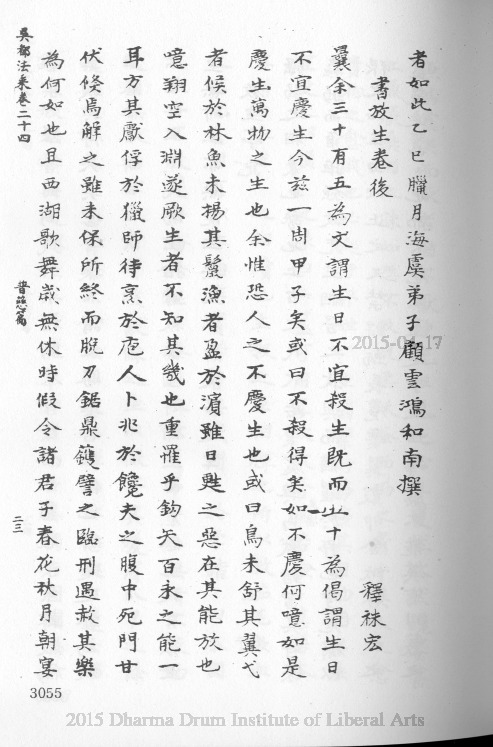 者如此乙巳臘月海虞弟子顧雲鴻和南撰
書放生卷後
釋袾宏
曩余三十有五為文謂生日不宜殺生既而五十為偈謂生日
不宜慶生今茲一周甲子矣或曰不殺得矣如不慶何噫如是
慶生萬物之生也余惟恐人之不慶生也或曰鳥未舒其翼弋
者候於林魚未揚其鬣漁者盈於濱雖日甦之惡在其能放也
噫翔空入淵遂厥生者不知其幾也重罹乎鉤矢百永之能一
耳方其獻俘於獵師待烹於庖人卜兆於饞夫之腹中死門甘
伏倏焉解之雖未保所終而脫刀鋸鼎鑊譬之臨刑遇赦其樂
為何如也且西湖歌舞歲無休時假令諸君子春花秋月朝宴
吳都法乘卷二十四
普慈篇
二三
3055
2015-03-17
2015 Dharma Drum Institute of Liberal Arts